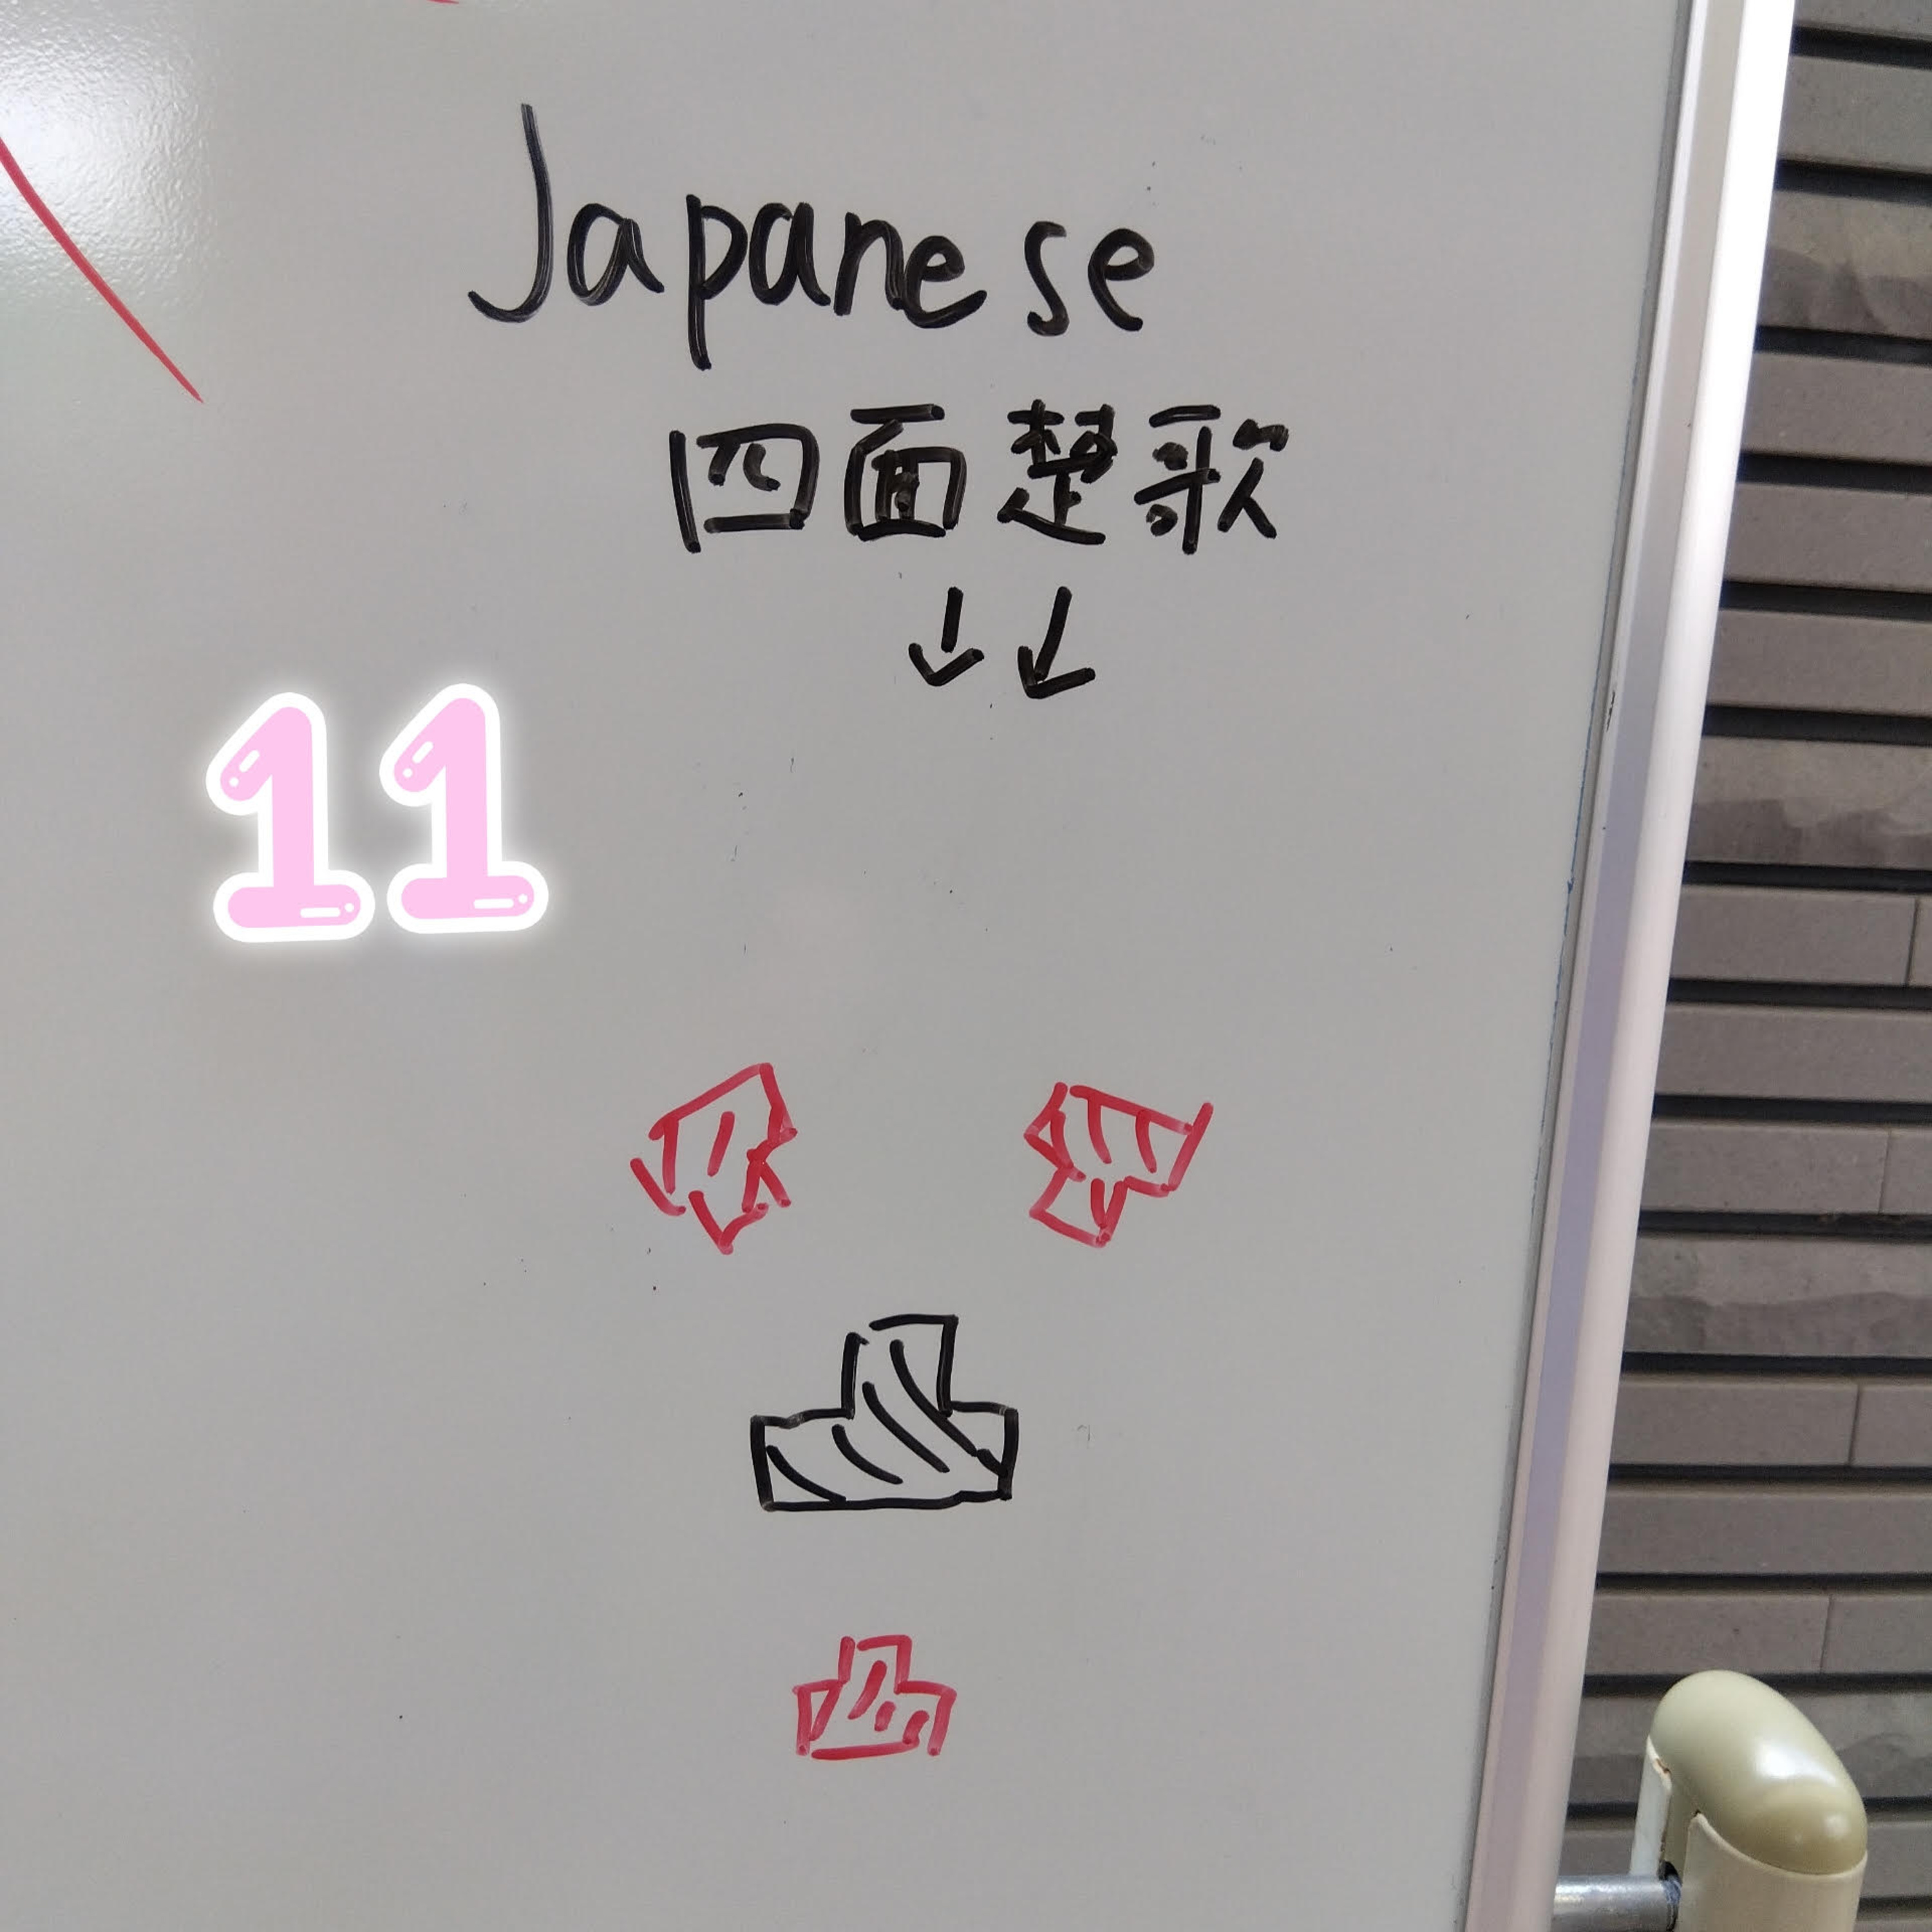 Japanese
四面楚歌
↓↓
11